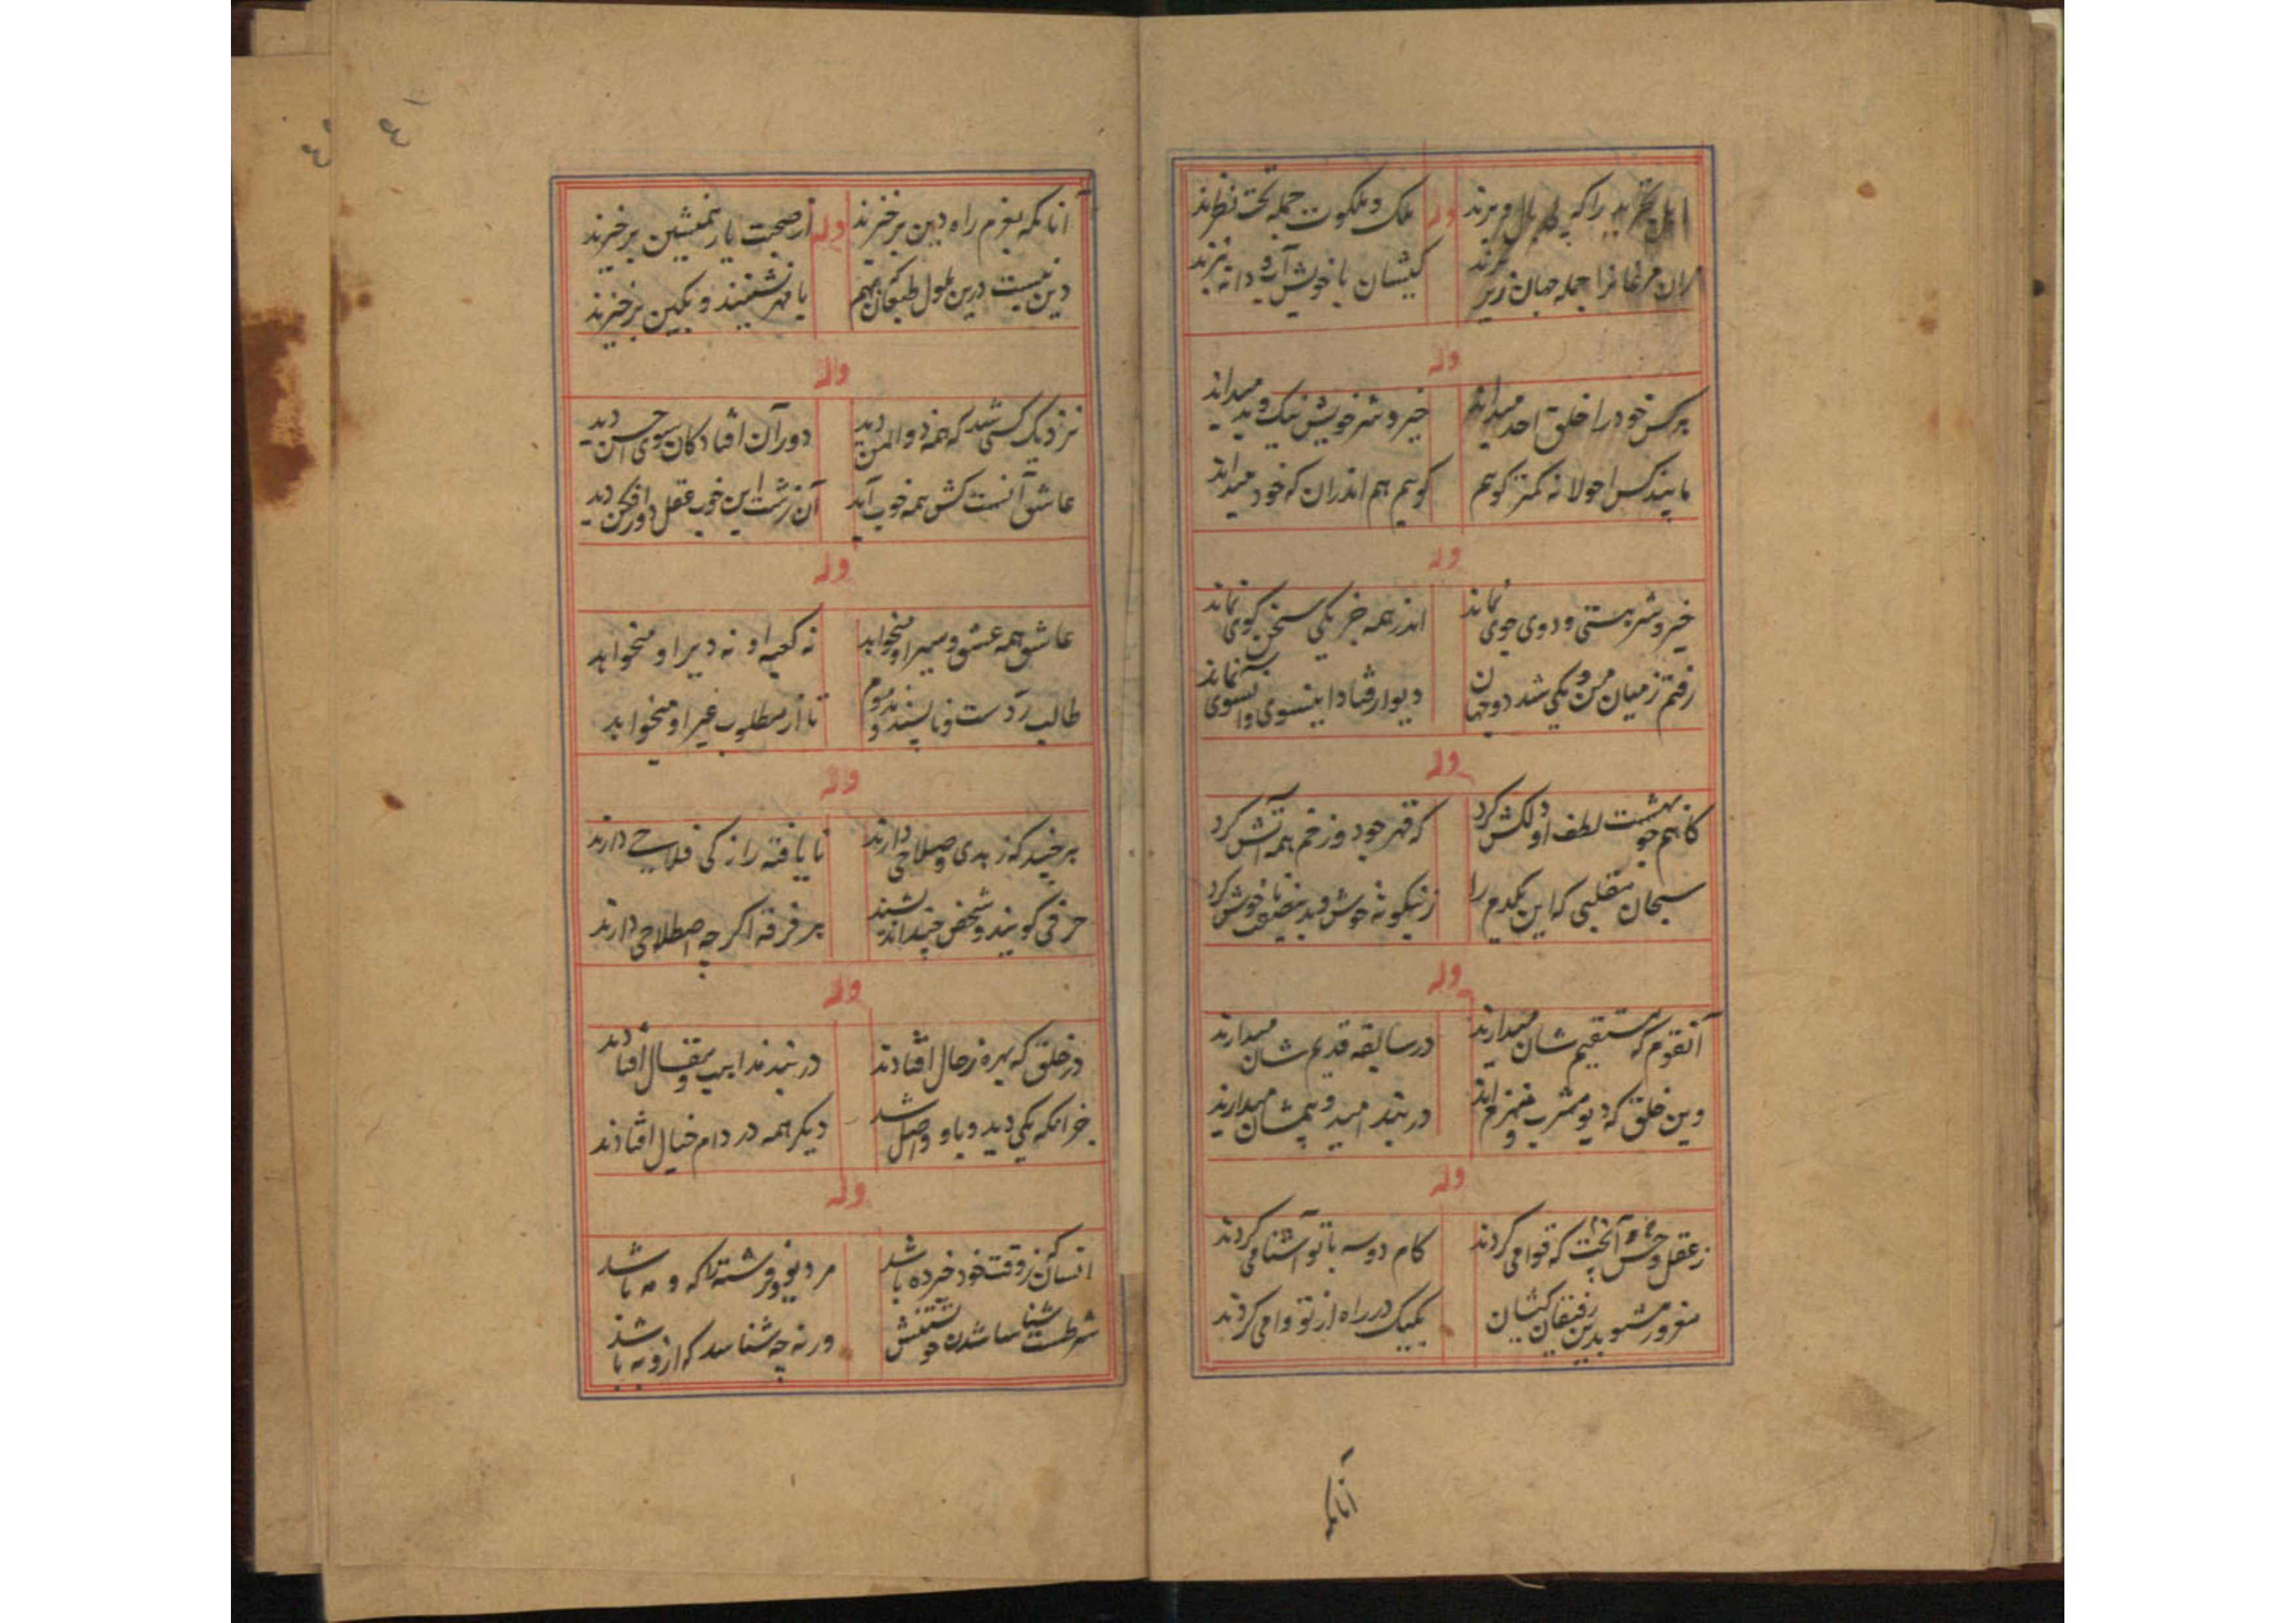 اهل تجرید را که بال و پرند وله ملک و ملکوت جمله تحت نظرند
مرغانرا جمله جهان زیر پرند کیشان با خویش آب و دانه نبرند
وله
هر کس خود را خلق احد میداند خیر و شر خویش نیک و بد میداند
مابیند کس احولا نه کمتر کویم کویم هم اندران که خود میداند
وله
خیر و شر هستی و دوی جوی نماند اندر همه جز یکی سخن کوی نماند
رفتم ز میان من و یکی شد دو جهان دیوار فتاد اینسوی و آنسوی نماند
وله
کاهم چو بهشت لطف او دلکش کرد که قهر چو دوزخم همه آتش کرد
سبحان مقلبی که این یکدم را زینکونه خوش
وله
آنقوم که مستقیم شان میدارند در سابقه قدیم شان میدارند
وین خلق که دیو مشرب و اند در بند امید و بیمشان میدارند
وله
ز عقل و حس که قوا می کردند کام دو سه با تو آشنا می کردند
مغرور مشو بدین رفیقان کیشان یکیک در راه از تو وا می کردند
آنانکه
٤١
آنانکه بعزم راه دین برخیزند وله از صحبت یار همنشین برخیزند
دین نیست درین طول که بهم با مهر نشینند و بکین برخیزند
وله
نزدیک کسی شد که همه ذوالمنن دید دور آن افتادکان سوی حسن دید
عاشق آنست کش همه خوب آید آن زشت این خوب عقل دور افکن دید
وله
عاشق همه عشق و سیر او میخواهد نه کعبه او نه دیر او میخواهد
طالب ردست و ناپسند و مذموم تا از مطلوب غیر او میخواهد
وله
هر چند که زهدی و صلاحی دارند نایافته راز کی فلاحی دارند
حرفی کویند و شخص چندانند هر فرقه اکر چه اصطلاحی دارند
وله
در خلق که بهره ز حال افتادند در بند مذاهب و مقال افتادند
جز آنکه یکی دید و باو واصل شد دیکر همه در دام خیال افتادند
وله
انسان که ز وقت خود خبرده باشد مر دیو و فرشته را که و مه باشد
شرطست شناسا شدن خویشتنش ورنه چه شناسد که ازو به باشد